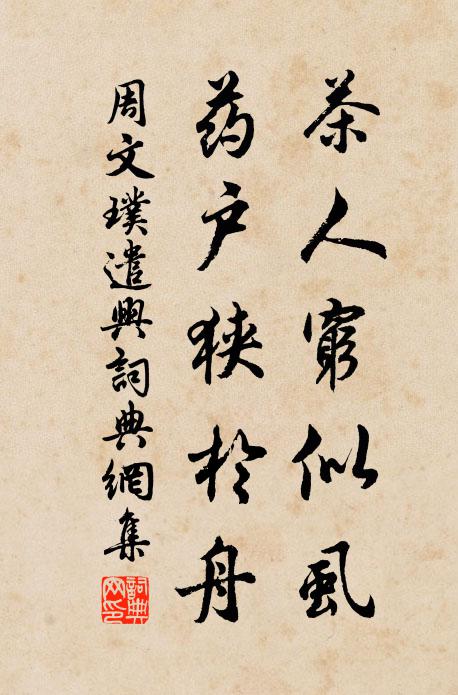 茶人窮似虱
药户狹於舟
周文璞遣興詞典網集
詞典網印